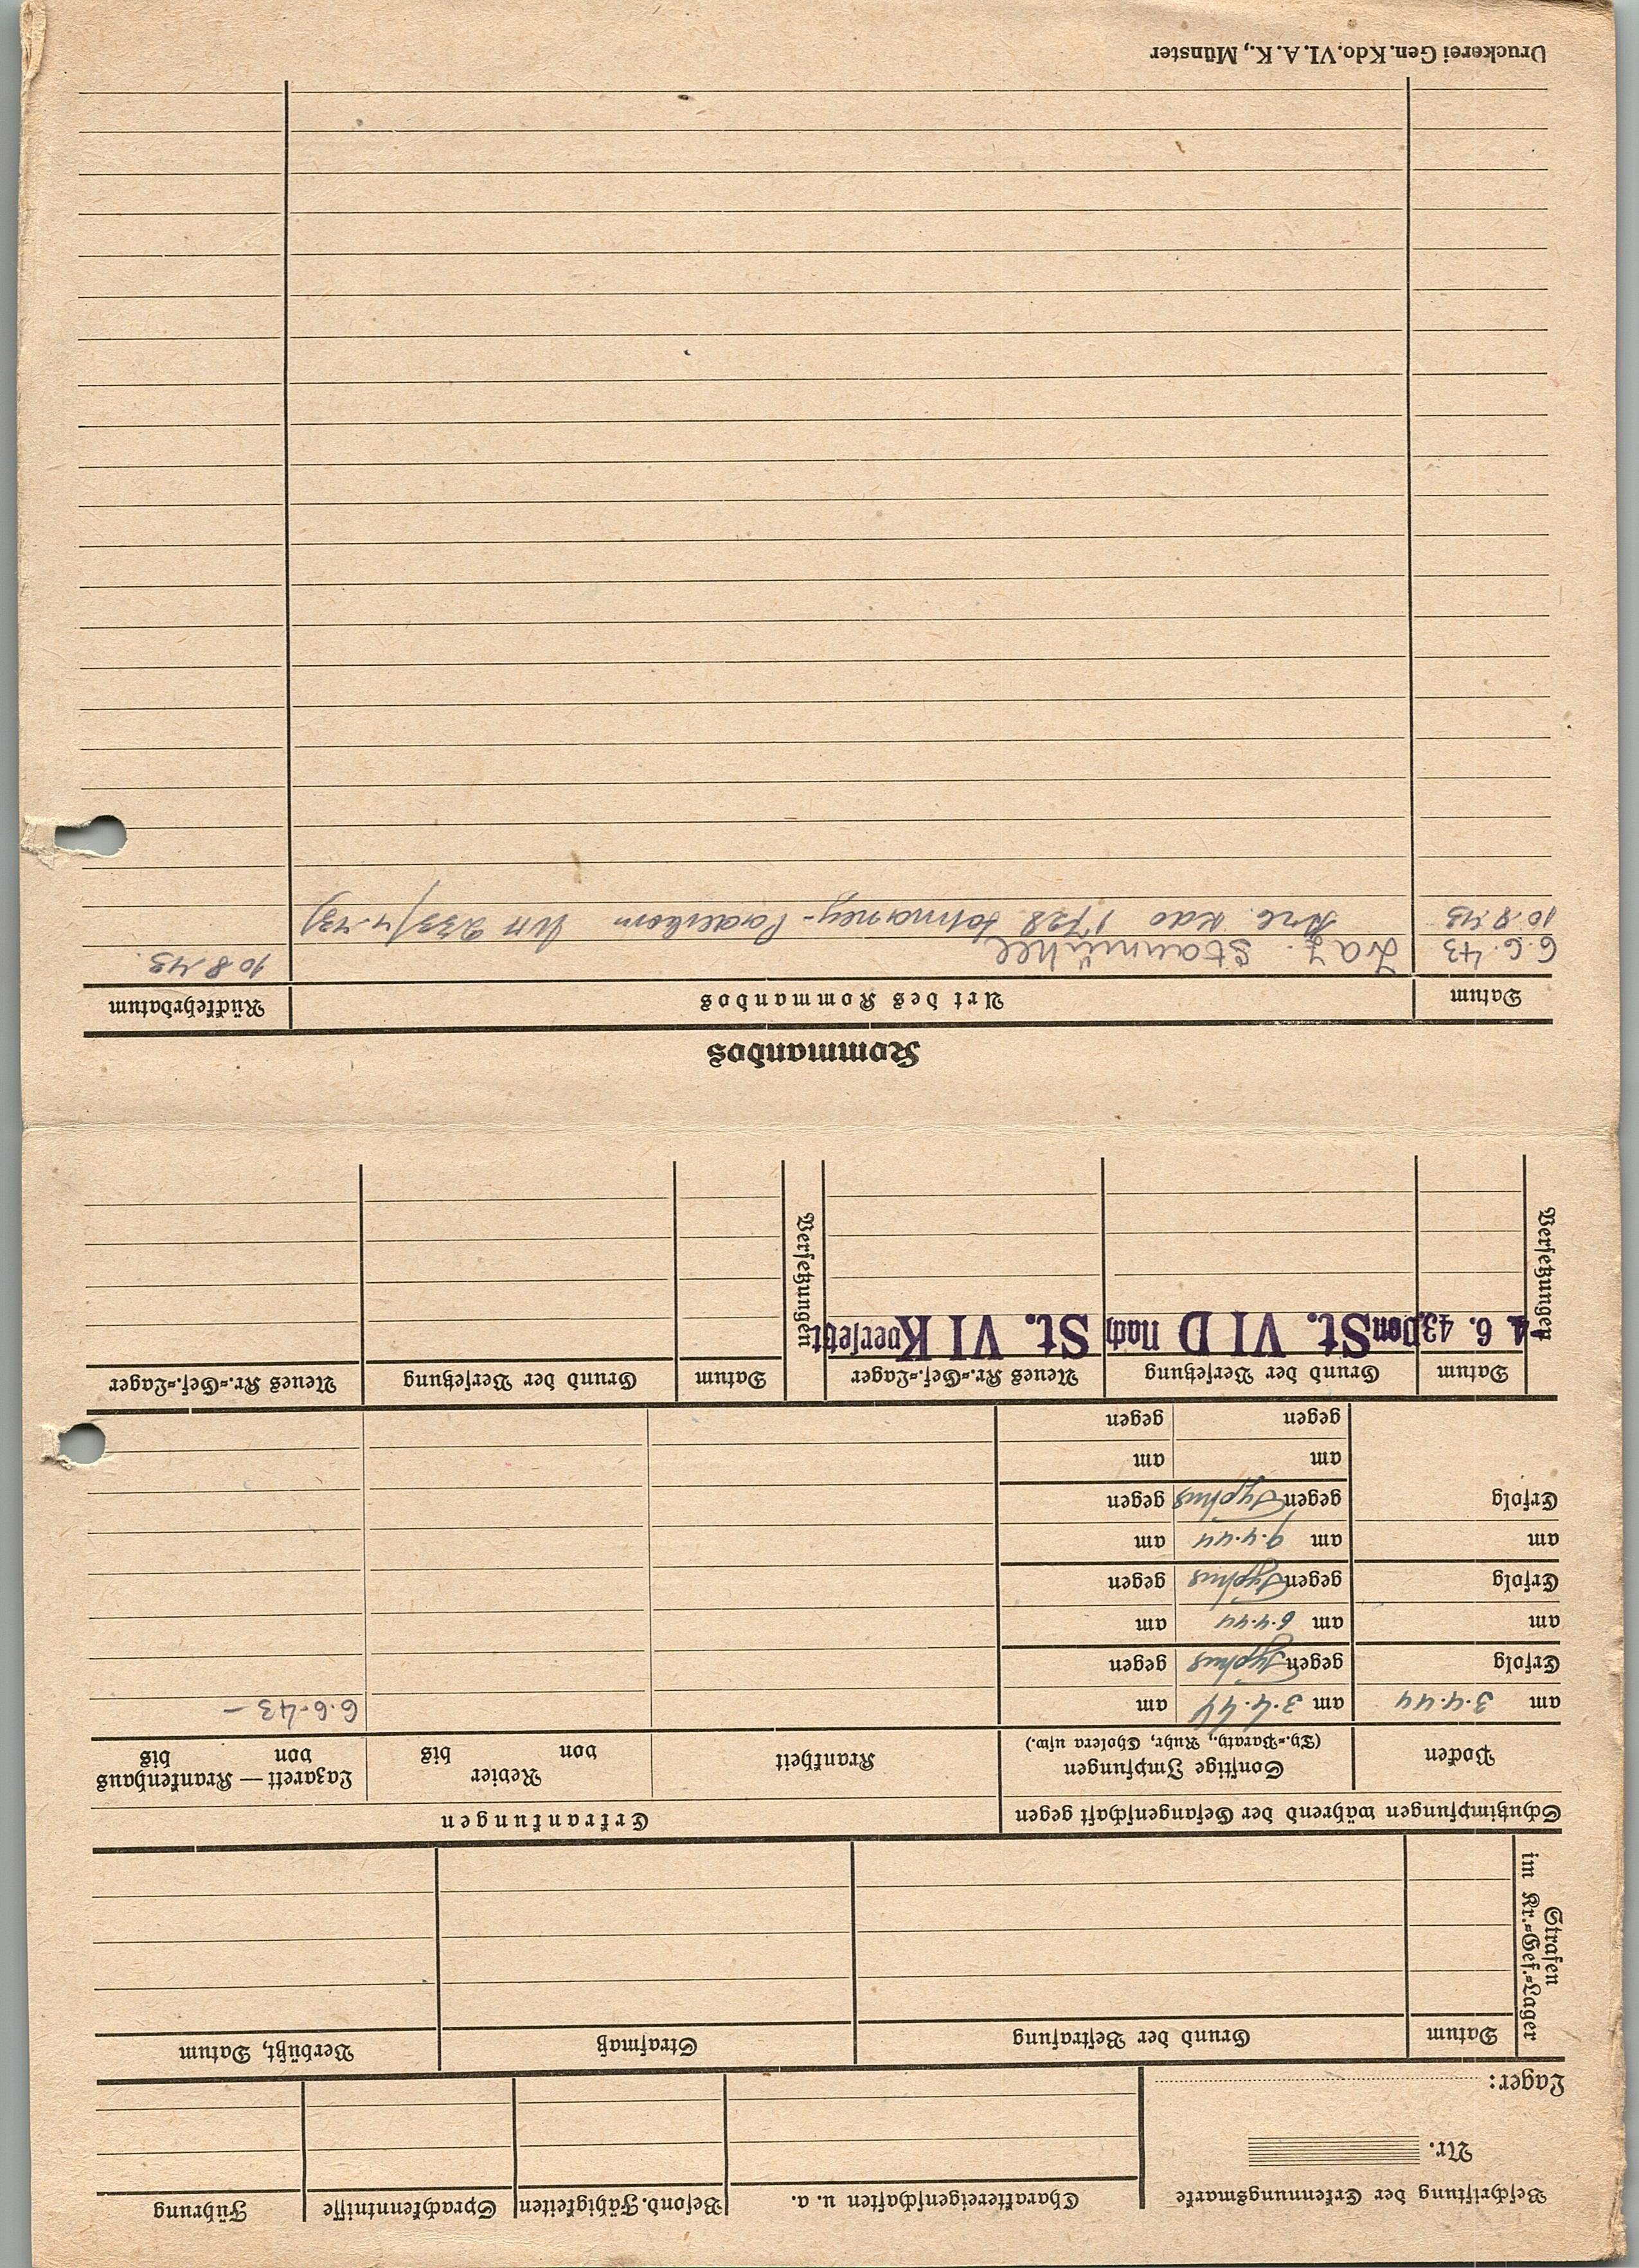 Beschriftung der Erkennungsmarke Charaktereigenschaften u. a. Besond. Fähigkeiten Sprachkenntnisse Führung
Nr.
Lager:
Strafen im Kr.=Gef.=Lager
Datum Grund der Bestrafung Strafmaß Verbüßt, Datum
Schutzimpfungen während der Gefangenschaft gegen Erkrankungen
Pocken Sonstige Impfungen Krankheit Revier Lazarett — Krankenhaus
(Ty.=Paraty., Ruhr, Cholera usw.) von bis von bis
am 3.4.44 am 3.4.44 am 6.6.43 –
Erfolg gegen Typhus gegen
am am 6.4.44 am
Erfolg gegen Typhus gegen
am am 9.4.44 am
Erfolg gegen Typhus gegen
am am
gegen gegen
Versetzungen Datum Grund der Versetzung Neues Kr.=Gef.=Lager Versetzungen Datum Grund der Versetzung Neues Kr.=Gef.=Lager
6. 43 Von St. VI D Nach St. VI K versetzt
Kommandos
Datum Art des Kommandos Rückkehrdatum
6.6.43 Laz. Staumühle 10.8.43.
10.8.43 Arb. Kdo 1728 Paderborn
Druckerei Gen. Kdo. VI. A. K., Münster